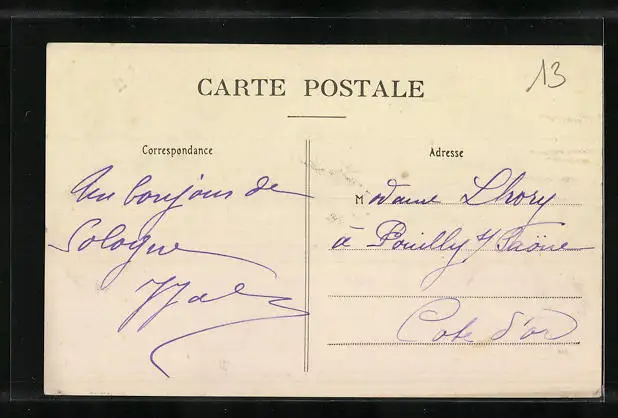 13
CARTE POSTALE
Correspondance
Un bonjour de
Sologne
Adresse
Madame Lhory
à Pouilly s/ Saône
Côte d'or